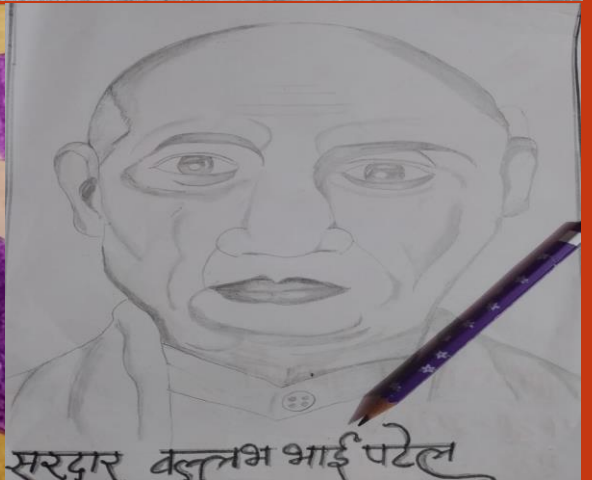 सरदार वल्लभ भाई पटेल